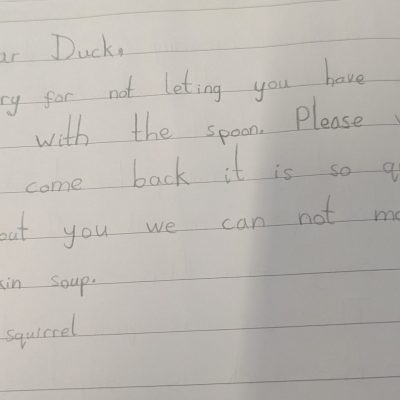 ar Duck,
ry for not leting you have
with the spoon. Please
come back it is so q
out you we can not m
in soup.
squirrel